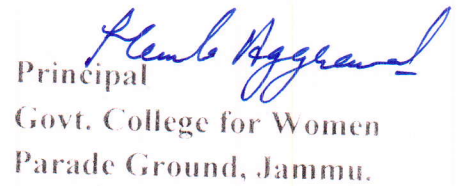 Aggrewal
Principal
Govt. College for Women
Parade Ground, Jammu.